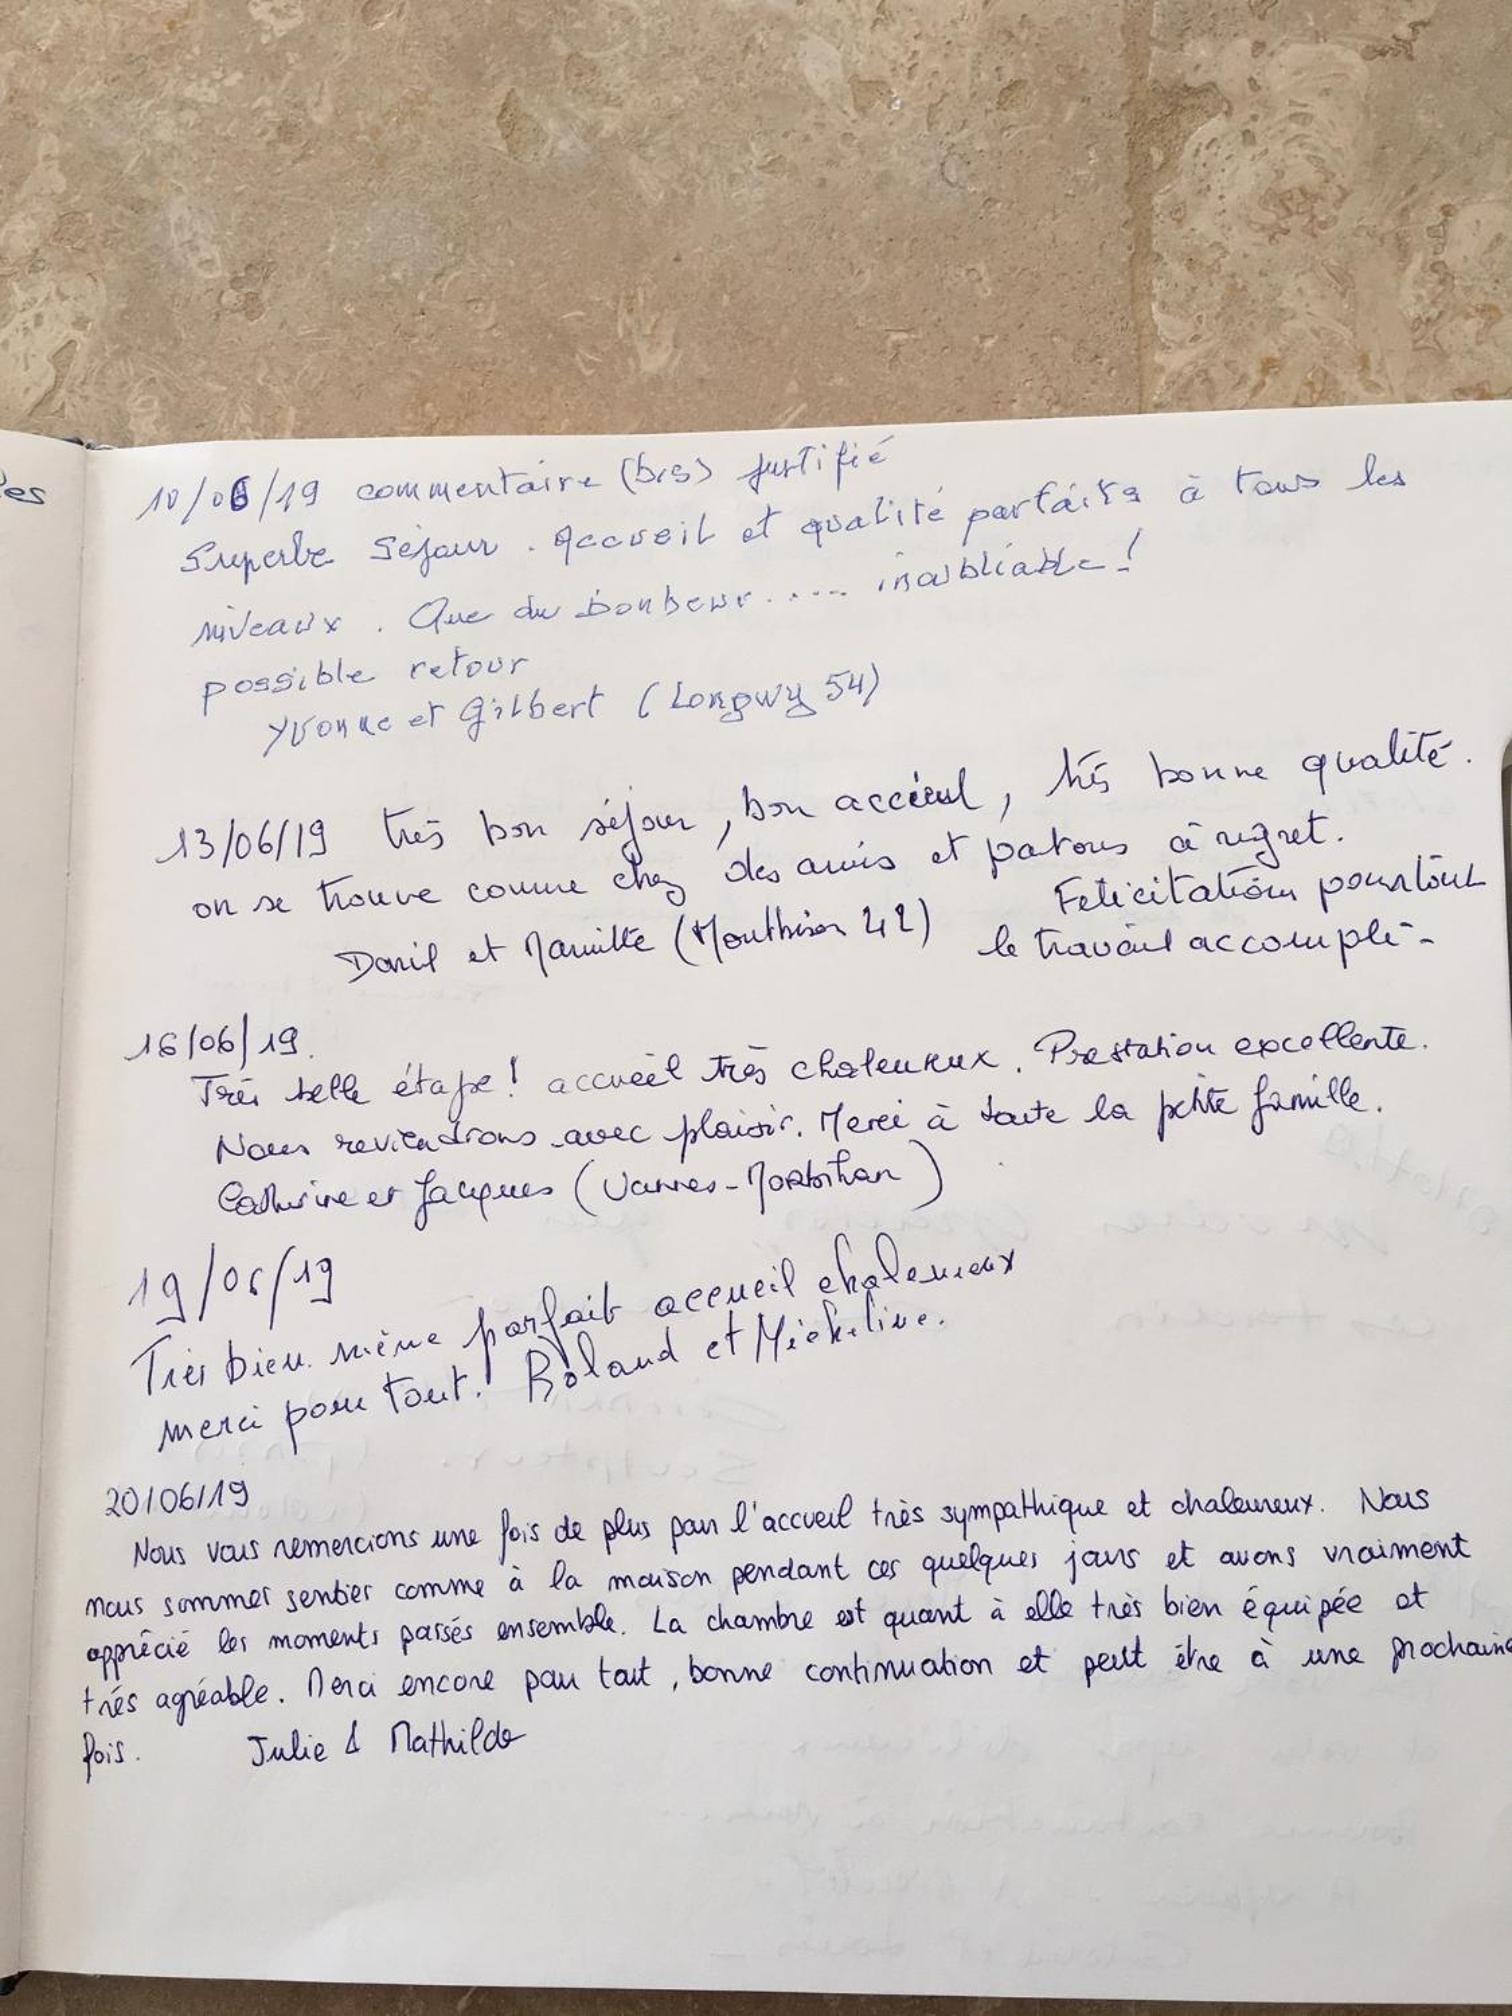 es
10/06/19 commentaire (bis) justifié
Superbe séjour. Accueil et qualité parfaits à tous les
niveaux. Que du bonheur..... inoubliable!
possible retour
Yvonne et Gilbert (Longwy 54)
13/06/19 très bon séjour, bon accueil, très bonne qualité.
on se trouve comme chez des amis et partons à regret.
Felicitations pour tout
et (42) le travail accompli-
16/06/19.
Très belle étape! accueil très chaleureux. Prestation excellente.
Nous reviendrons avec plaisir. Merci à toute la petite famille.
Catherine et Jacques (Vannes-Morbihan)
19/06/19
Très bien même parfait accueil chaleureux
merci pour tout. Roland et Micheline.
20/06/19
Nous vous remercions une fois de plus pour l'accueil très sympathique et chaleureux. Nous
nous sommes senties comme à la maison pendant ces quelques jours et avons vraiment
apprécié les moments passés ensemble. La chambre est quant à elle très bien équipée et
très agréable. Merci encore pour tout, bonne continuation et peut être à une prochaine
fois. Julie & Mathilde